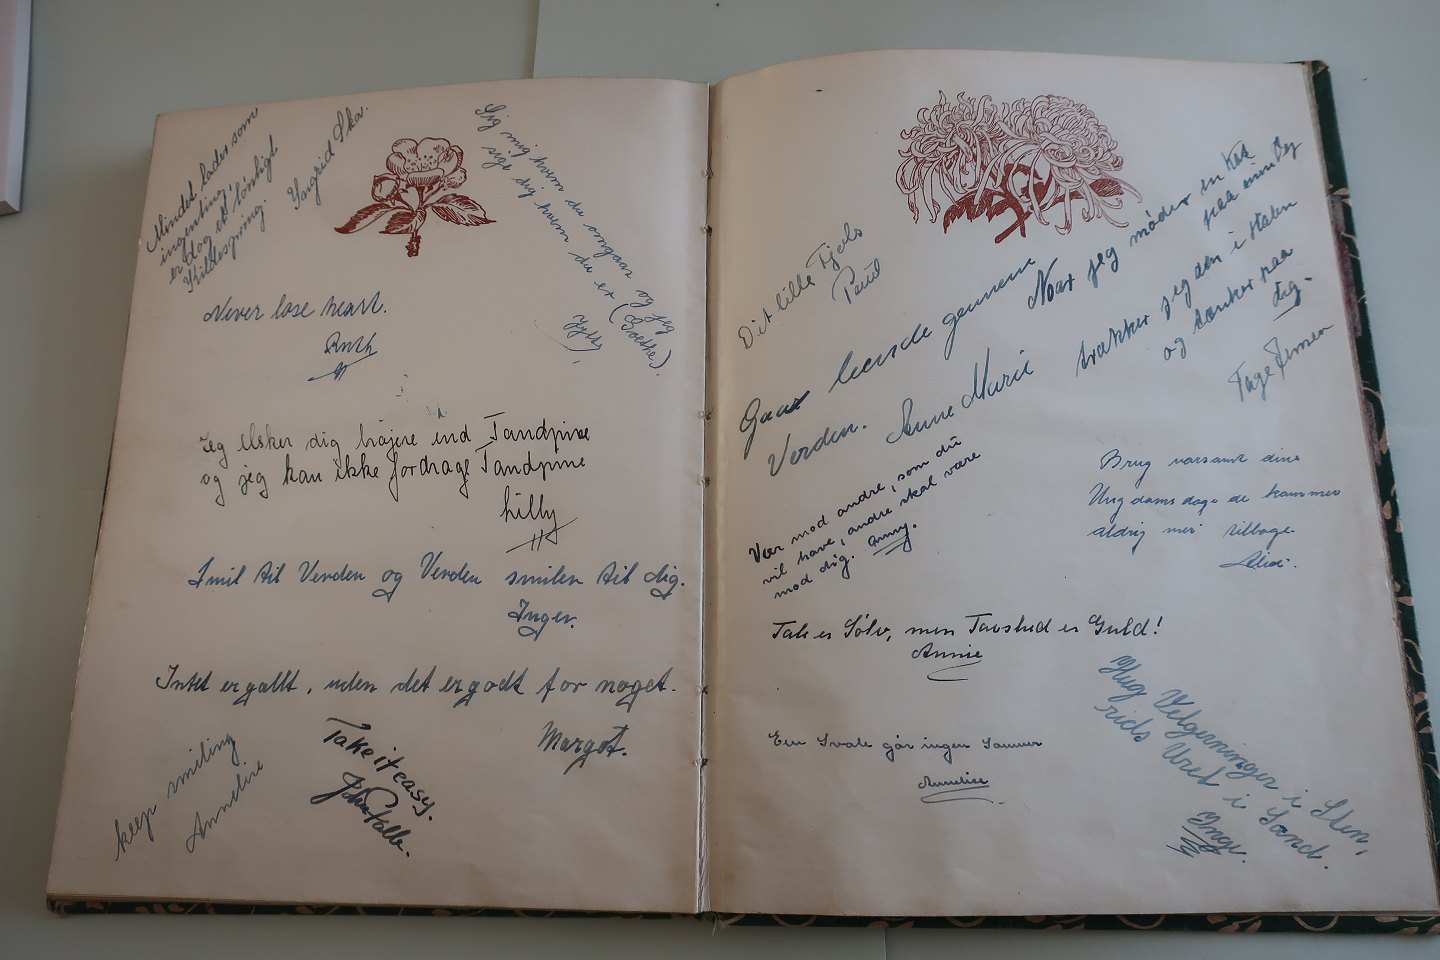 Mindet lades som
ingenting,
er dog et lønligt
Kildespring.
Yngrid Ska.
Sig mig hvem du omgaas og jeg
sige dig hvem du er (Goethe)
Jytty
Never lose heart.
Ruth
Jeg elsker dig højere end Tandpine
og jeg kan ikke fordrage Tandpine
Lilly
Smil til Verden og Verden smiler til dig.
Inger.
Intet er galt, uden det er godt for noget.
Margot.
keep smiling
Annelise
Take it easy.
John
Dit lille Fjols
Poul
Gaa leende gennem
Verden. Anne Marie
Naar jeg møder en Kat
paa min Vej
trækker jeg den i Halen
og tænker paa
dig.
Tage Jensen
Vær mod andre, som du
vil have, andre skal være
mod dig. Anny.
Brug varsomt dine
Ungdomsdage de kommer
aldrig mer tilbage.
Tale er Sølv, men Tavshed er Guld!
Annie
Een Svale gør ingen Sommer
Annelise
Hug Velgerninger i Sten,
rids Vred i Sand.
Inge.